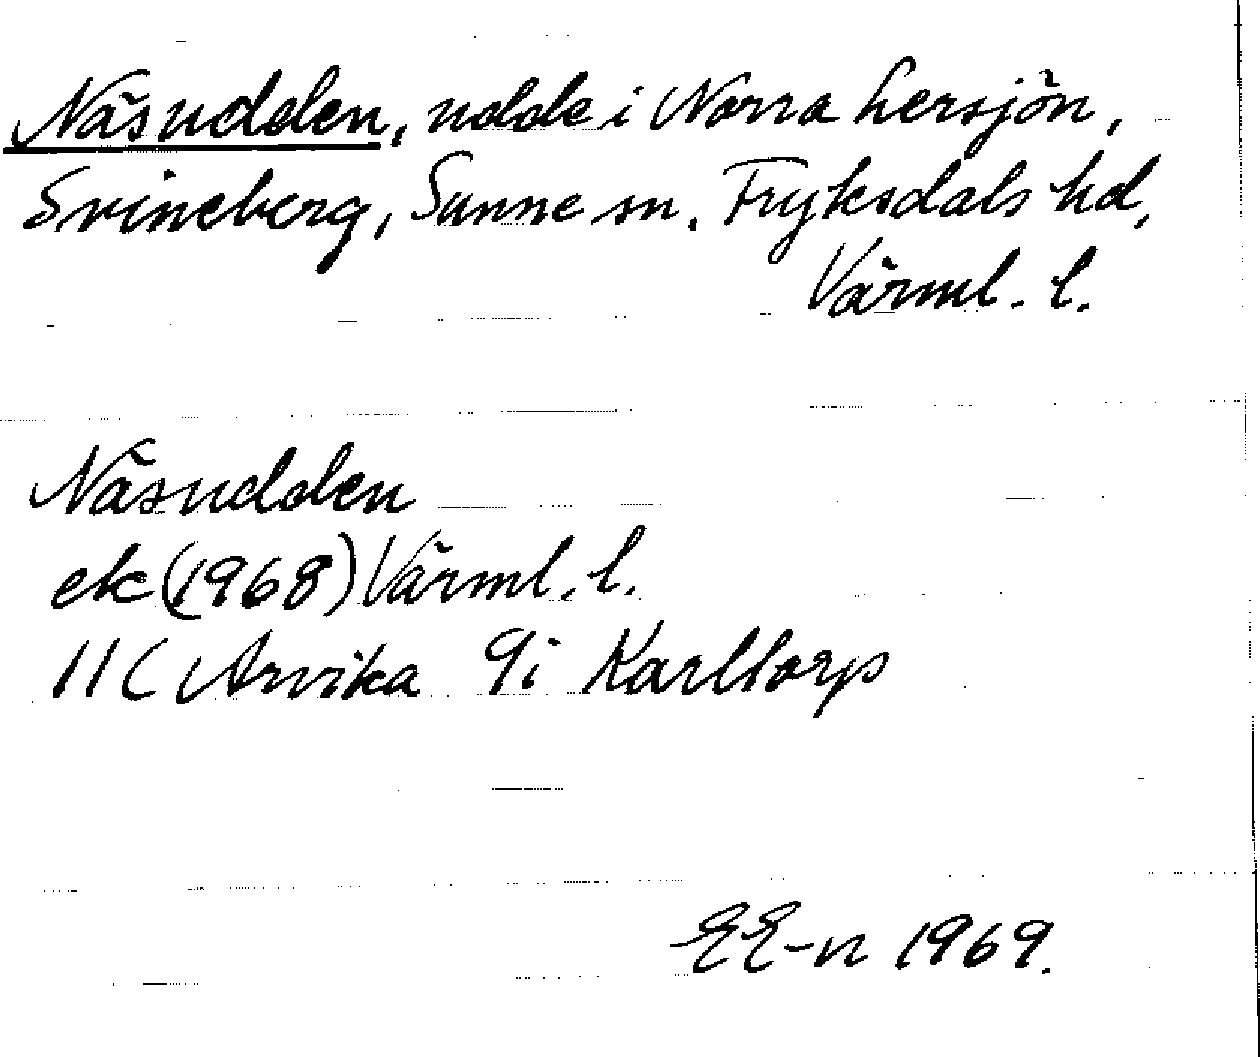 Näsudden, udde i Norra Lersjön,
Svineberg, Sunne sn. Fryksdals hd,
Värml. l.
Näsudden
ek (1968) Värml. l.
11C Arvika 9i Karltorp
EE-n 1969.